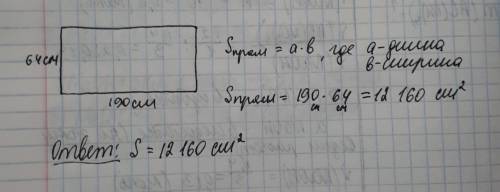 64см
190см
Sпрям = a·b, где a-длина
b-ширина
Sпрям = 190 см · 64 см = 12 160 см²
Ответ: S = 12 160 см²